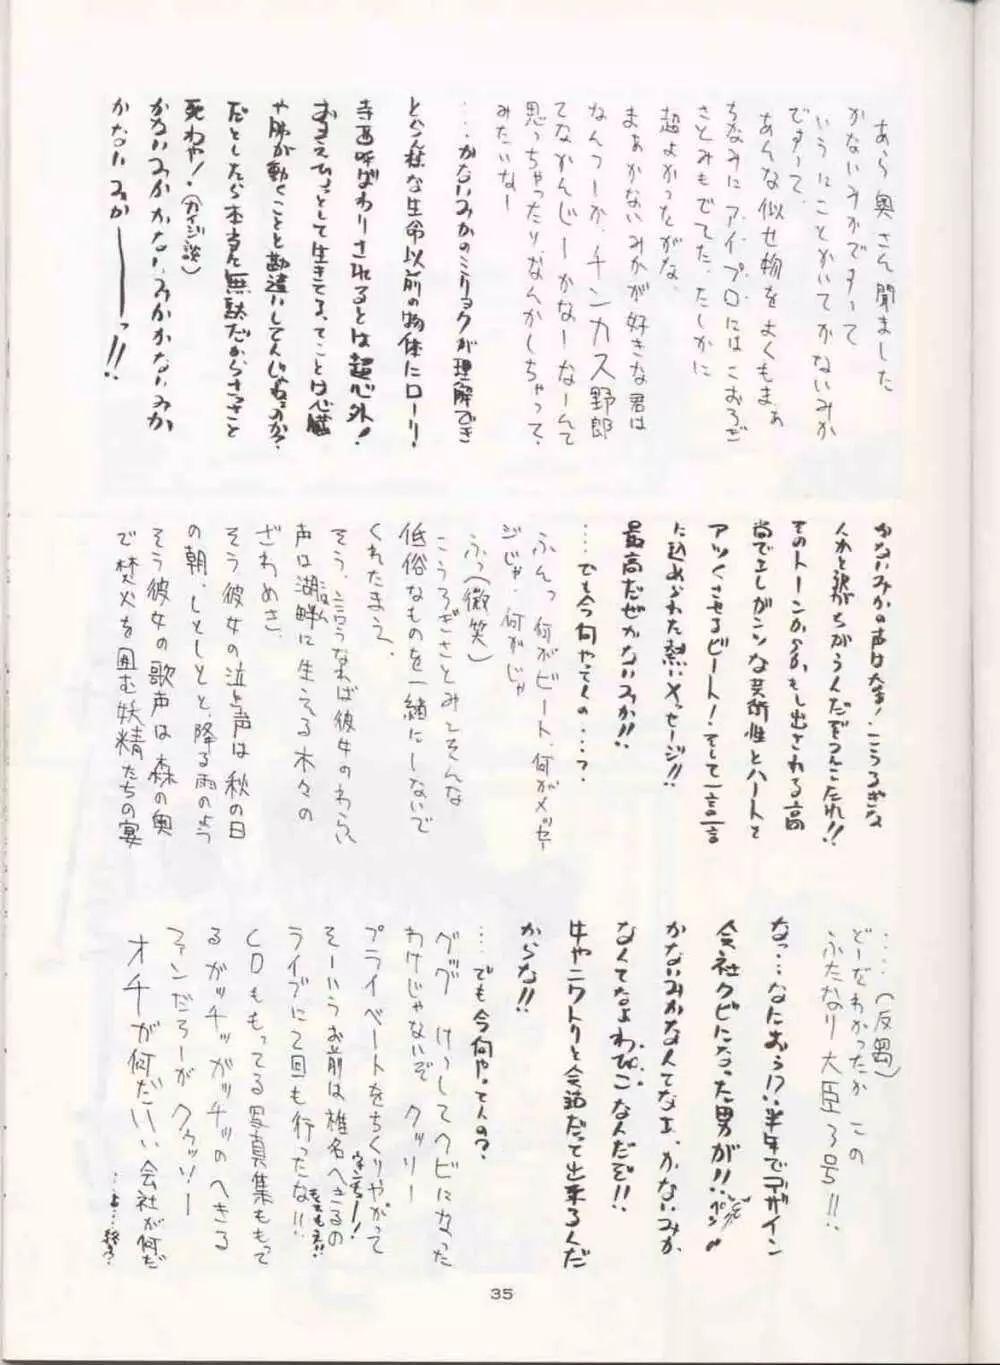 あら奥さん聞ました
かないみかですって
いうにことかいてかないみか
ですって、
あんな似せ物をよくもまぁ
ちなみにアイプロにはこおろぎ
さとみもでてた、たしかに
超よかったがな、
まぁかないみかが好きな君は
なんつーか、チンカス野郎
てなかんじーかなーなーんて
思っちゃったりなんかしちゃって、
みたいなー
……かないみかのミリョクが理解でき
とらん様な生命以前の物体にローリー
寺西呼ばわりされるとは超心外!
おまえひょっとして生きてる、てことは心臓
や肺が動くことと勘違いしてんじゃねェのか?
だとしたら本当に無駄だからさっさと
死ねや!(カイジ談)
かないみかかないみかかないみか
かないみかーーーっ!!
かないみかの声は太陽!こうろぎな
んかと訳がちがうんだぞうんこたれ!!
そのトーンからかもし出される高
尚でエレガンツな芸術性とハートを
アツくさせるビート!そして一言一言
に込められた熱いメッセージ!!
最高だぜかないみか!!
……でも今何やってんの……?
ふんっ何がビート、何がメッセー
ジじゃ、何がじゃ
ふっ(微笑)
こうろぎさとみをそんな
低俗なものと一緒にしないで
くれたまえ、
そう、言うなれば彼女のわらい
声は湖畔に生える木々の
ざわめき、
そう彼女の泣き声は秋の日
の朝、しとしとと、降る雨のよう
そう彼女の歌声は森の奥
で焚火を囲む妖精たちの宴
……(反罵)
どーだわかったかこの
ふたなり大臣3号!!
なっ…なにおぅ!?半年でデザイン
会社クビになった男が!!
かないみかなくてなェ、かないみか
なくてなよわぴこなんだぞ!!
牛やニワトリと会話だって出来るんだ
からな!!
…でも今何やってんの?
グッグ けっしてクビになった
わけじゃないぞ クッソー
プライベートをちくりやがって
そーいうお前は椎名へきるの
ライブに2回も行ったな!!
CDももってる写真集ももって
るガッチッガッチッのへきる
ファンだろーがクゥッソー
オチが何だいい会社が何だ
…よ…終り?
35